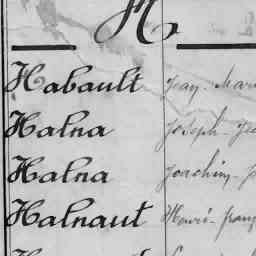 H
Habault Jean-Mari
Halna Joseph-Je
Halna Joachim-
Halnaut Henri-franç